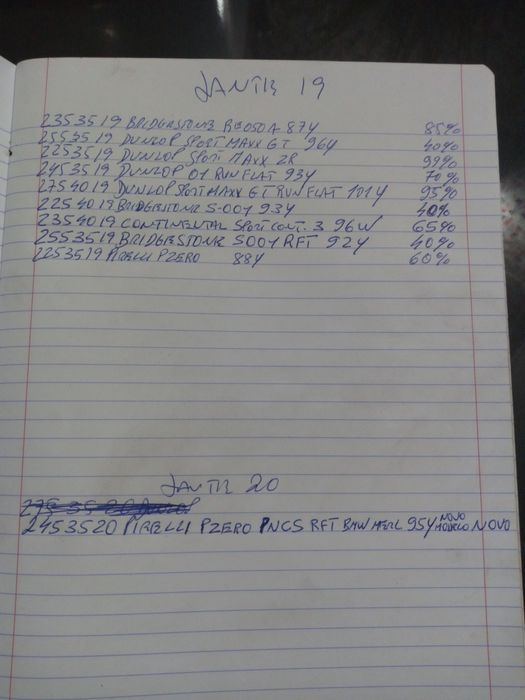 JANTE 19
2353519 BRIDGESTONE RE050A 87Y 85%
2553519 DUNLOP SPORT MAXX GT 96Y 40%
2253519 DUNLOP SPORT MAXX ZR 99%
2453519 DUNLOP 01 RUN FLAT 93Y 70%
2754019 DUNLOP SPORT MAXX GT RUN FLAT 101Y 95%
2254019 BRIDGESTONE S-001 93Y 40%
2354019 CONTINENTAL SPORT CONT. 3 96W 65%
2553519 BRIDGESTONE S001 RFT 92Y 40%
2253519 PIRELLI PZERO 88Y 60%
JANTE 20
275 35 20 Dunlop
2453520 PIRELLI PZERO PNCS RFT BMW 95Y NOVO MODELO NOVO